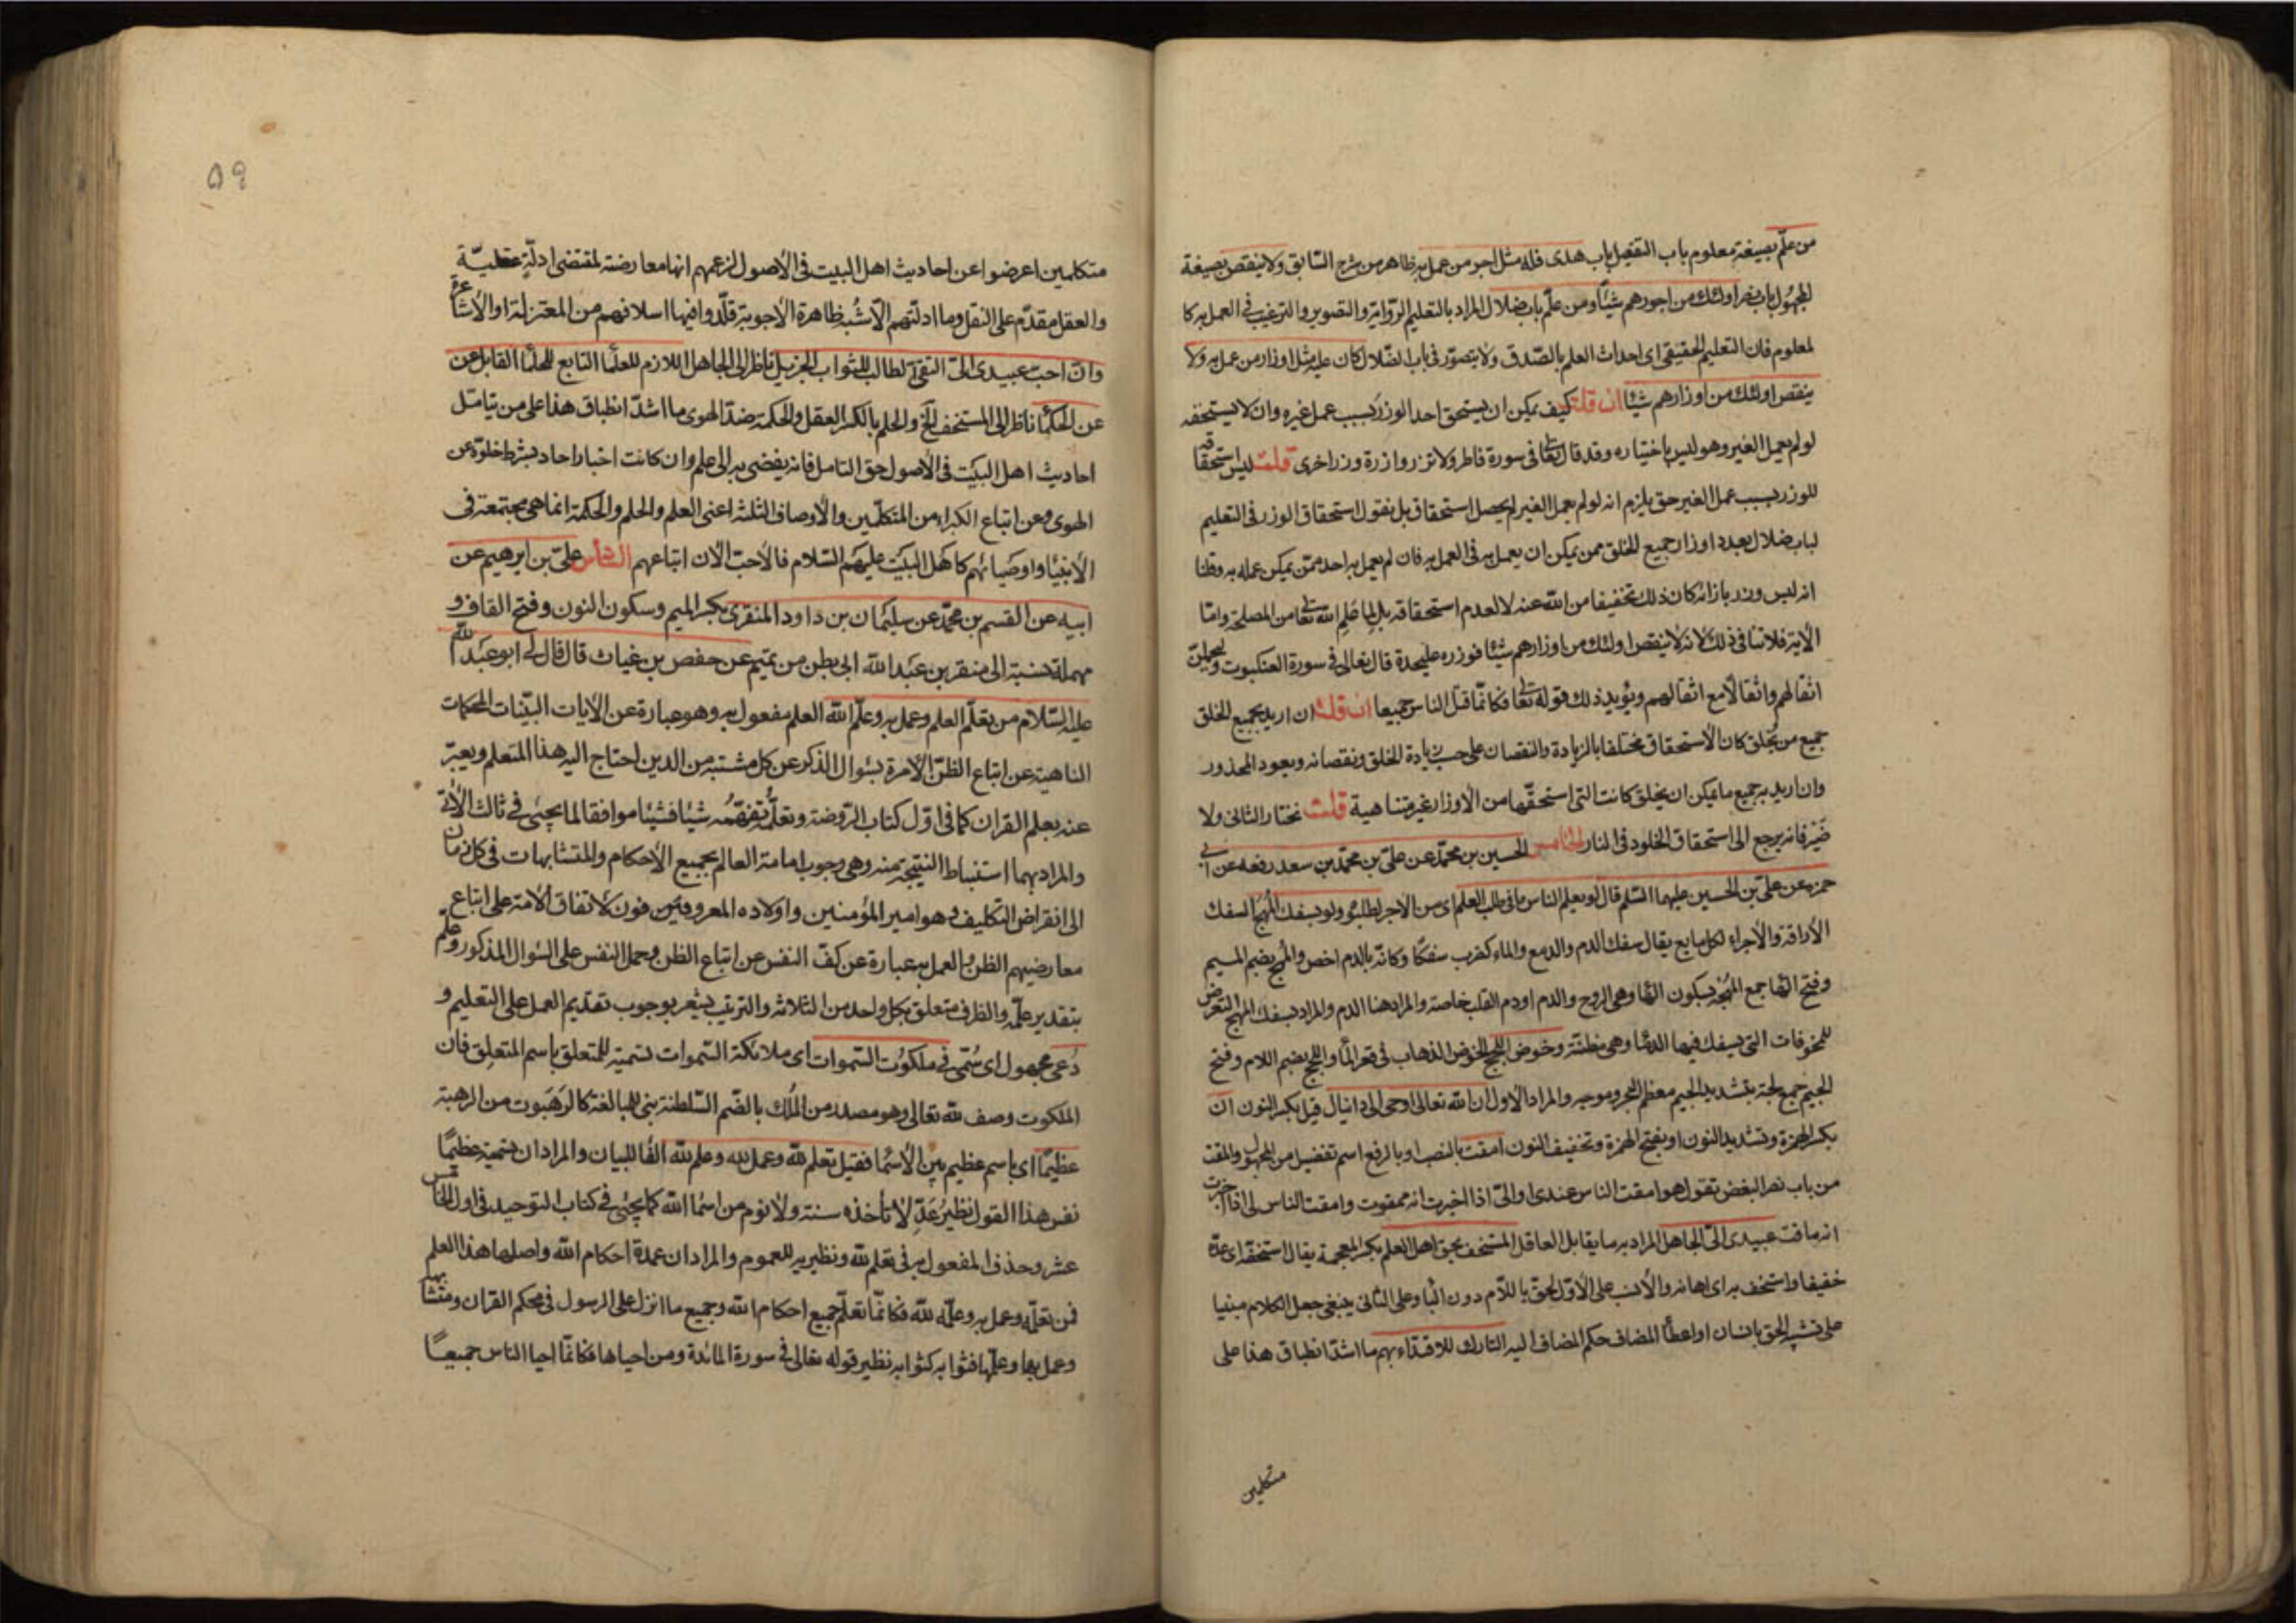 من علّم بصيغة معلوم باب التفعيل باب هدى فله مثل اجر من عمل به ظاهر من شرح السّابق ولا ينقص بصيغة
المجهول باب نصر اولئك من اجورهم شيئًا ومن علّم باب ضلال المراد بالتعليم الرّواية والتصوير والترغيب في العمل به كا
لمعلوم فان التعليم الحقيقي اى احداث العلم بالصّدق ولا يتصوّر في باب الضّلال كان عليه مثل اوزار من عمل به ولا
ينقص اولئك من اوزارهم شيئًا ان قلت كيف يمكن ان يستحق احد الوزر بسبب عمل غيره وان لا يستحقه
لو لم يعمل الغير وهو ليس باختياره وقد قال تعالى في سورة فاطر ولا تزر وازرة وزر اخرى قلت ليس استحقاقه
للوزر بسبب عمل الغير حتى يلزم انه لو لم يعمل الغير لم يحصل استحقاق بل نقول استحقاق الوزر في التعليم
لباب ضلال بعدد اوزار جميع الخلق ممن يمكن ان يعمل به في العمل به فان لم يعمل به احد ممّن يمكن عمله به وقلنا
انه ليس وزر بازائه كان ذلك تخفيفا من الله عنه لا لعدم استحقاقه بل لما علم الله تعالى من المصلحة وامّا
الآية فلا تنافي ذلك لانه لا ينقص اولئك من اوزارهم شيئًا فوزره عليحدة قال تعالى في سورة العنكبوت وليحملنّ
اثقالهم واثقالًا مع اثقالهم ويؤيد ذلك قوله تعالى فكانّما قتل الناس جميعا ان قلت ان اريد بجميع الخلق
جميع من يُخلق كان الاستحقاق مختلفا بالزيادة والنقصان على حسب زيادة الخلق ونقصانه ويعود المحذور
وان اريد به جميع ما يمكن ان يخلق كانت التى استحقّها من الاوزار غير متناهية قلت نختار الثاني ولا
ضير فانه يرجع الى استحقاق الخلود في النار الخامس الحسين بن محمّد عن علىّ بن محمّد بن سعد رفعه عن ابى
حمزه عن علىّ بن الحسين عليهما السّلم قال لو يعلم الناس ما في طلب العلم اى من الاجر لطلبوه ولو بسفك المُهج السفك
الاراقة والاجراء لكل مايع يقال سفك الدم والدمع والماء كضرب سفكًا وكانّه بالدم اخص والمُهج بضم الميم
وفتح الهاء جمع المُهْجة بسكون الهاء وهى الروح والدم او دم القلب خاصة والمراد هنا الدم والمراد بسفك المهج التعرض
للمخوفات التى يسفك فيها الدّماء وهى مظنّته وخوض اللُّجج الخوض الذهاب في قعر الماء واللجج بضم اللام وفتح
الجيم جمع لجّة بتشديد الجيم معظم البحر وموجه والمراد الاول ان الله تعالى اوحى الى دانيال قيل بكسر النون انّ
بكسر الهمزة وتشديد النون او بفتح الهمزة وتخفيف النون امقت بالنصب او بالرفع اسم تفضيل من المجهول والمقت
من باب نصر البغض تقول هو امقت الناس عندى او الىّ اذا اخبرت انه ممقوت وامقت الناس لى اذا اخبرت
انه ماقت عبيدى الىّ الجاهل المراد به ما يقابل العاقل المستخف بحق اهل العلم بكسر المعجمة يقال استخفّه اى عدّه
خفيفا واستخف به اى اهانه والانسب على الاوّل لحقّ باللّام دون الباء وعلى الثاني ينبغى جعل الكلام مبنيا
على تشبيه الحق بانسان او اعطاء المضاف حكم المضاف اليه التارك للاقتداء بهم ما اشدّ انطباق هذا على
متكلمين
٥٩
متكلمين اعرضوا عن احاديث اهل البيت في الاصول لزعمهم انها معارضة لمقتضى ادلّة عقليّة
والعقل مقدّم على النقل وما ادلّتهم الّا شُبه ظاهرة الاجوبة قلّدوا فيها اسلافهم من المعتزلة او الاشاعرة
وانّ احبّ عبيدى الىّ التقىّ الطالب للثواب الجزيل ناظر الى الجاهل اللازم للعلماء التابع للحلماء القابل عن
عن الحكماء ناظر الى المستخف الخ والحلم بالكسر العقل والحكمة ضدّ الهوى ما اشدّ انطباق هذا على من يتامّل
احاديث اهل البيت في الاصول حق التامل فانه يفضى به الى علم وان كانت اخبار احاد بشرط خلوّه عن
الهوى وعن اتباع الكبراء من المتكلّمين والاوصاف الثلثة اعنى العلم والحلم والحكمة انما هى مجتمعة في
الانبياء واوصيائهم كاهل البيت عليهم السّلام فالاحبّ الآن اتباعهم السّادس علىّ بن ابرهيم عن
ابيه عن القسم بن محمّد عن سليمان بن داود المنقرى بكسر الميم وسكون النون وفتح القاف و
مهملة نسبة الى منقر بن عبدالله ابى بطن من تميم عن حفص بن غياث قال قال لى ابو عبدالله
عليه السّلام من تعلّم العلم وعمل به وعلّم الله العلم مفعول به وهو عبارة عن الآيات البيّنات المحكمات
الناهية عن اتباع الظنّ الآمرة بسُوال الذكر عن كل مشتبه من الدين احتاج اليه هذا المتعلم ويعبّر
عنه بعلم القران كما في اوّل كتاب الرّوضة وتعلّمه تفهّمُه شيئا فشيئا موافقا لما يجيئ في ثالث الآتى
والمراد بهما استنباط النتيجة منه وهى وجوب امامة العالم بجميع الاحكام والمتشابهات في كل زمان
الى انقراض التكليف وهو امير المؤمنين واولاده المعروفين فون لاتفاق الامة على اتباع
معارضيهم الظن والعمل به عبارة عن كفّ النفس عن اتباع الظن وحمل النفس على السّوال المذكور وعلّم
بتقدير علّمه والظرف متعلق بكل واحد من الثلاثة والترتيب يشعر بوجوب تقديم العمل على التعليم و
دُعى مجهول اى سُمّى في ملكوت السّموات اى ملائكة السّموات تسمية للمتعلق باسم المتعلِق فان
الملكوت وصف لله تعالى وهو مصدر من المُلك بالضّم السّلطنة بنى للمبالغة كالرَهَبوت من الرهبة
عظيمًا اى باسم عظيم بين الأسماء فقيل تعلم لله وعمل لله وعلم لله الفاء للبيان والمراد ان تسمية عظيمًا
نفس هذا القول نظير عَدِّ لا تأخذه سنة ولا نوم من اسماء الله كما يجيئ في كتاب التوحيد في اول الخامس
عشر وحذف المفعول به في تعلم لله ونظيريه للعموم والمراد ان عمدة احكام الله واصلها هذا العلم
فمن تعلّمه وعمل به وعلّمه لله فكانّما تعلّم جميع احكام الله وجميع ما انزل على الرسول في محكم القران ومتشابهه
وعمل بها وعلّمها فثوابه كثوابه نظير قوله تعالى في سورة المائدة ومن احياها فكانّما احيا الناس جميعًا